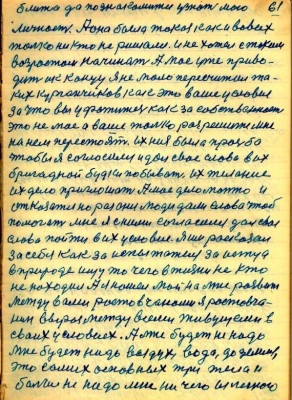 61
близко да познакомится узнать мою
личность. А она была такая как и вовсех
только никто не решали. и не хотел с таким
возрастом начинать А мое уже приво-
дит их концу Я не мало пересчитал та-
ких курганчиков как это ваше условия
За что вы ухватитесь как за собственность
это не мое а ваше только разрешите мне
на нем перестоять. их ния была просьба
чтобы я согласился и дал свое слово в их
бригадной будки побывать их желание
их дело приглашать А мое дело пойти и
отказать но раз они люди дали слово чтоб
помогать мне я с ними согласился дал свое
слово пойти в их условие. Я им рассказал
за себя как за испытателя за метод
в природе ищу то чего в жизни не кто
не находил А я нашел мой на мне развит
между вами росто в чанами я ростовга-
мы между всеми живущими в
своих условиях. А мне будет не надо
мне будет надо воздух, вода, да земля,
это самих основных три тела и
больше не надо мне ни чего из личного